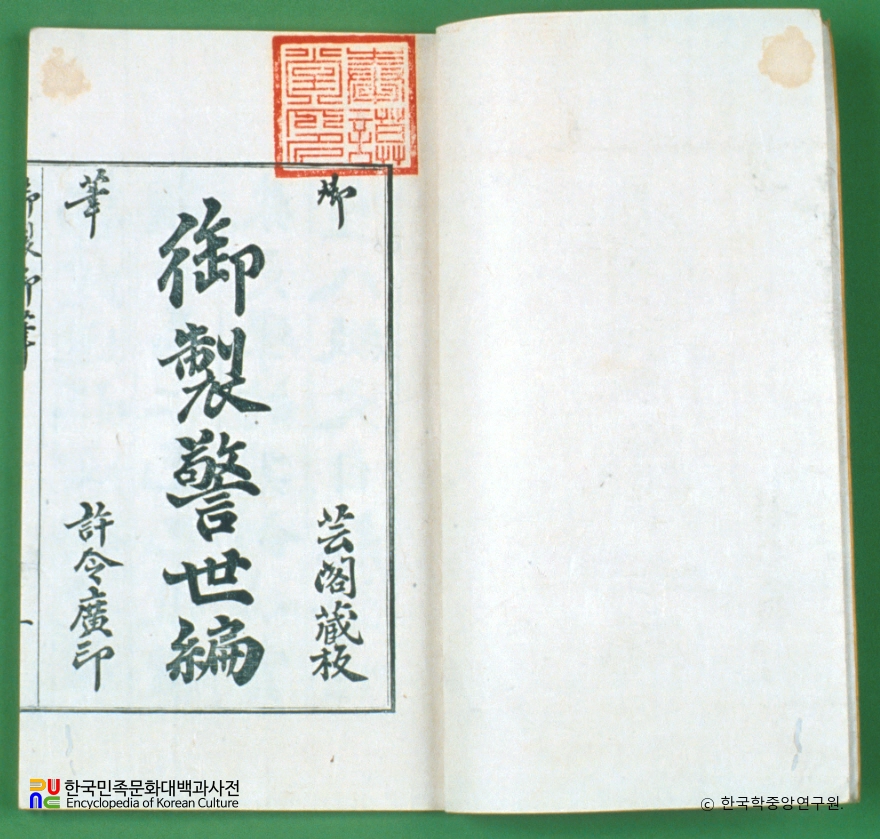 御
芸閣藏板
御製警世編
筆
許令廣印
御製御筆
一
한국민족문화대백과사전
Encyclopedia of Korean Culture
© 한국학중앙연구원.